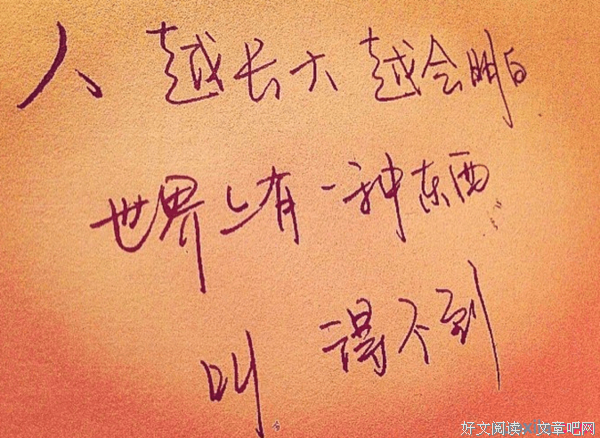 人 越长大越会明白
世界上有一种东西
叫 得不到
好文阅读:文章吧网